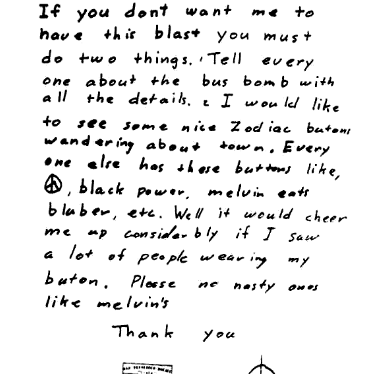 If you dont want me to
have this blast you must
do two things. Tell every
one about the bus bomb with
all the details. 2 I would like
to see some nice Zodiac butons
wandering about town. Every
one else has these buttons like,
☮, black power, melvin eats
bluber, etc. Well it would cheer
me up considerbly if I saw
a lot of people wearing my
buton. Please no nasty ones
like melvin's
Thank you